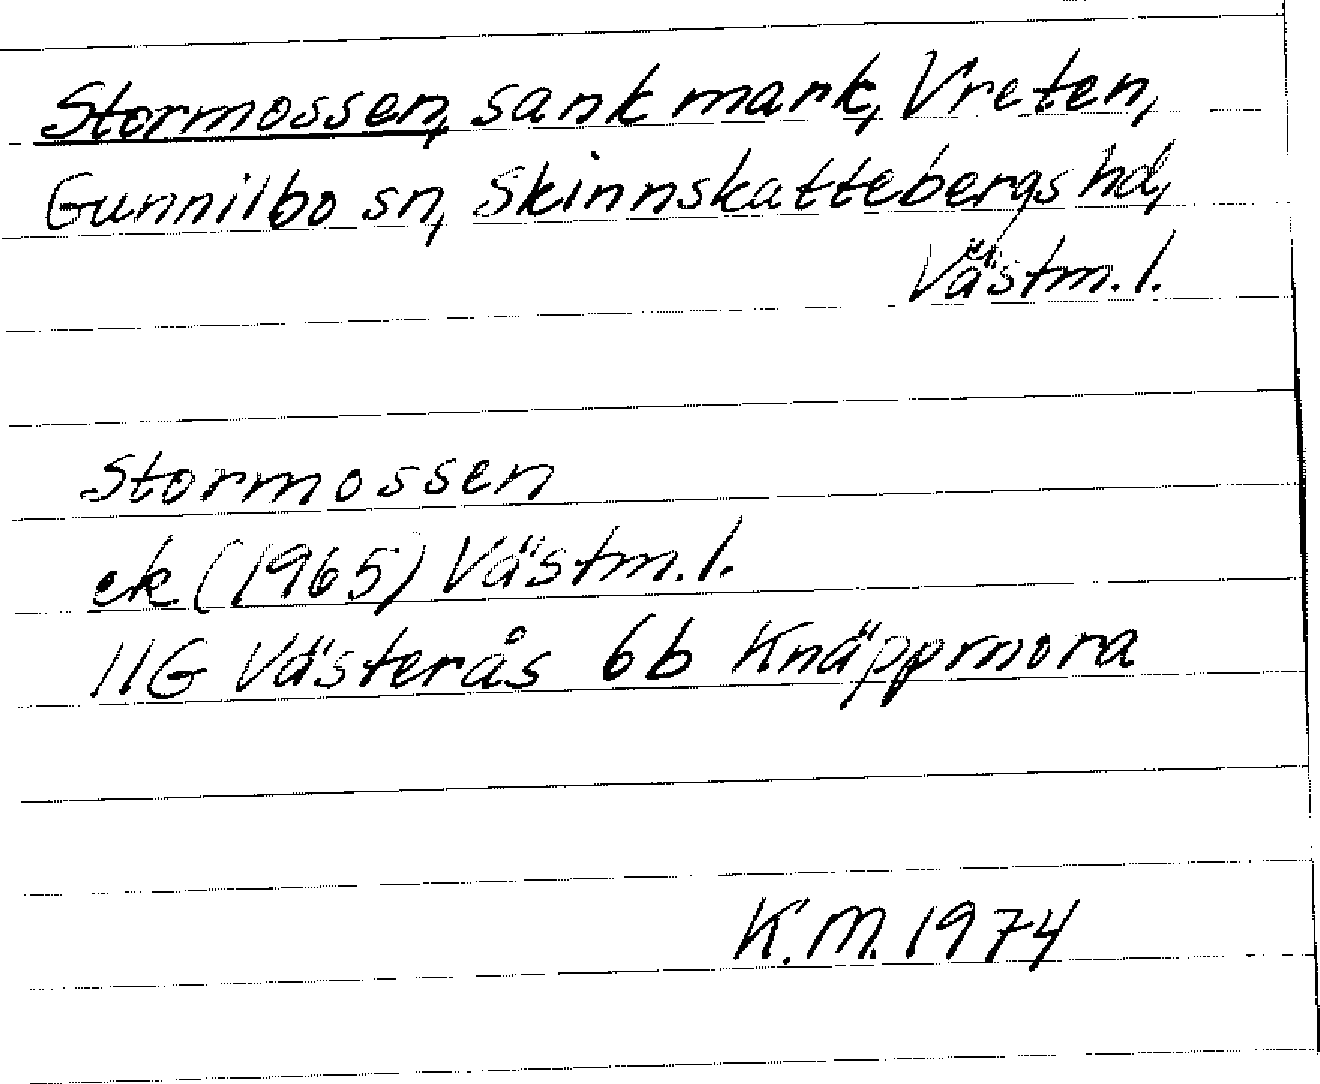 Stormossen, sank mark, Vreten,
Gunnilbo sn, Skinnskattebergs hd,
Västm. l.
Stormossen
ek (1965) Västm. l.
11G Västerås 6b Knäppmora
K.M. 1974